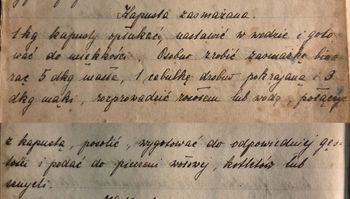 Kapusta zasmażana.
1 kg kapusty opłukać, nastawić w wodzie i goto-
wać do miękkości. Osobno zrobić zasmażkę bio-
rąc 5 dkg masła, 1 cebulkę drobno pokrajaną i 3
dkg mąki, rozprowadzić rosołem lub wodą, połączyć
z kapustą, posolić, wygotować do odpowiedniej gęs-
tości i podać do pieczeni wołowej, kotletów lub